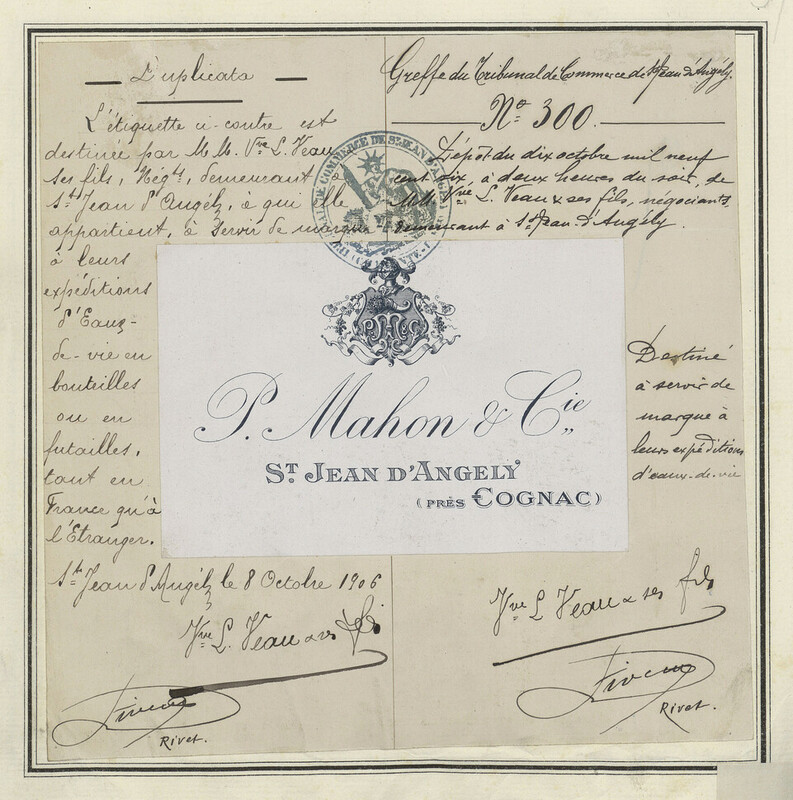 Duplicata
L'étiquette ci-contre est
destinée par M.M. Vve L. Veau
ses fils, Négts, demeurant à
St Jean d'Angély, à qui elle
appartient, à servir de marque
à leurs
expéditions
d'Eaux-
de-vie en
bouteilles
ou en
futailles,
tant en
France qu'à
l'Etranger.
St Jean d'Angély le 8 Octobre 1906
Vve L. Veau & ses fils
Rivet.
Greffe du Tribunal de Commerce de St Jean d'Angély.
No 300.
Dépôt du dix octobre mil neuf
cent six, à deux heures du soir, de
MM. Vve L. Veau & ses fils, négociants,
demeurant à St Jean-d'Angély.
Destiné
à servir de
marque à
leurs expéditions
d'eaux-de-vie
Vve L Veau & ses fils
Rivet.
DE COMMERCE DE ST JEAN D'ANGELY
P. M & Cie
P. Mahon & Cie
ST. JEAN D'ANGELY
(PRÈS COGNAC)